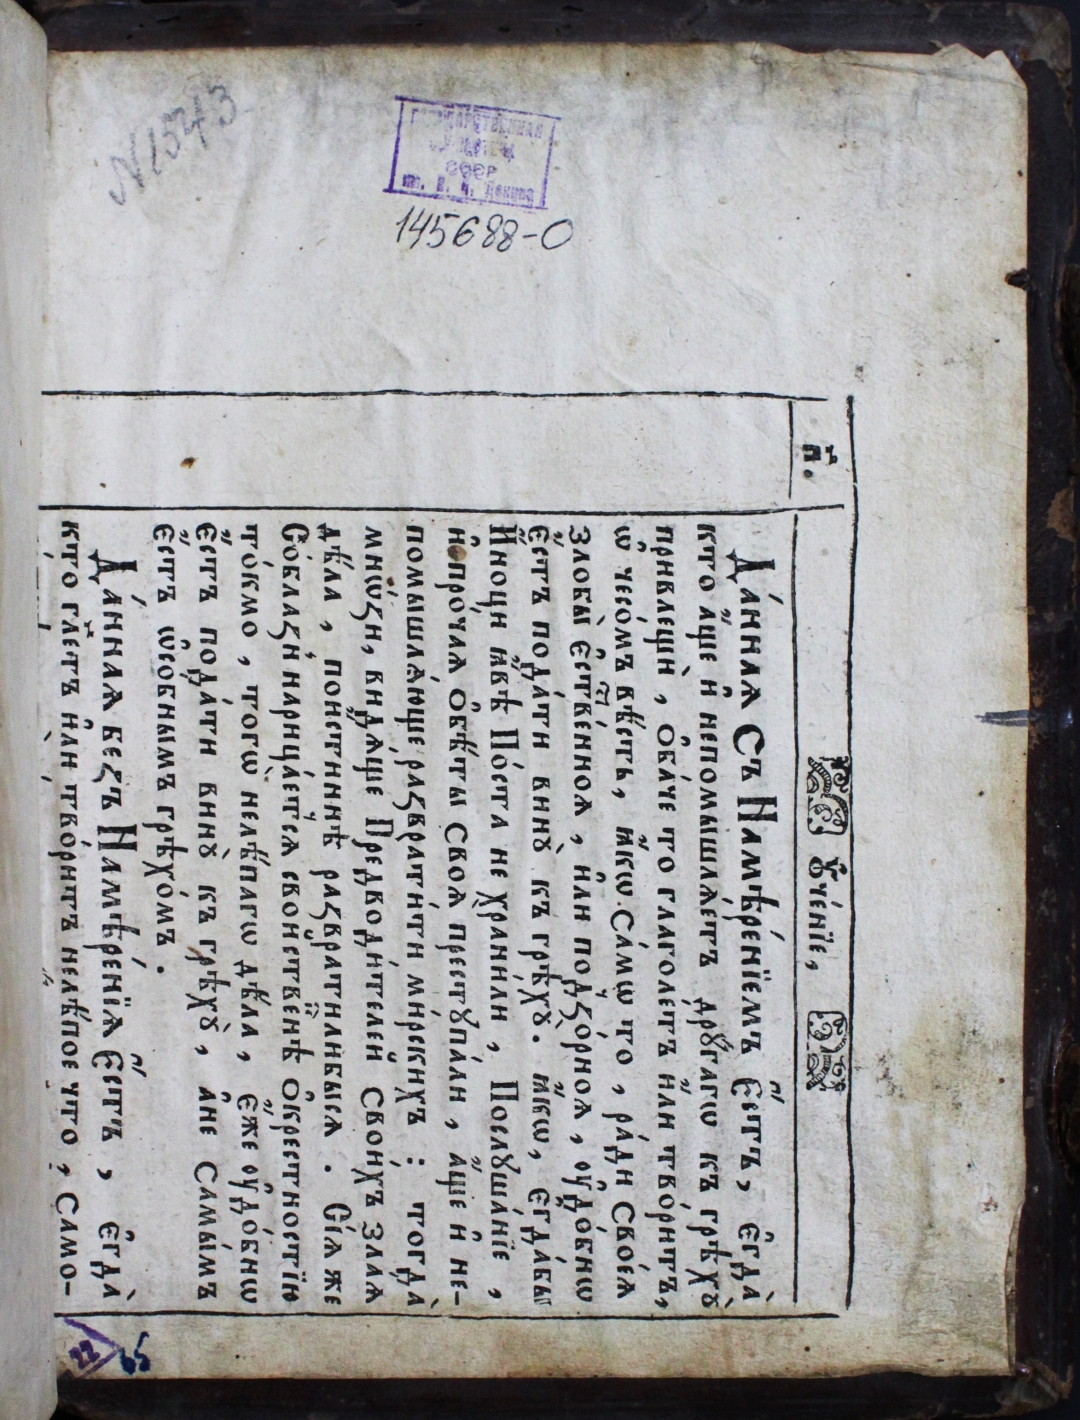 N 1543
ГОСУДАРСТВЕННАЯ
СССР
им. В. И. Ленина
145688-0
п҃.
Оу҆че́нїе,
Да́ннаѧ Съ Намѣ́ренїемъ є҆́стъ, є҆гда̀
кто а҆́ще и҆ непомышлѧ́етъ дрꙋ́гагѡ къ грѣхꙋ̀
привлещѝ, ѻ҆ба́че то глаго́летъ и҆́ли твори́тъ,
ѡ҆ чесо́мъ вѣ́сть, ꙗ҆́кѡ Са́мѡ что, ра́ди Своеѧ̀
Злобы̀ є҆стⷭ҇венноѧ, и҆́ли подзо́рноѧ, ᲂу҆до́бнѡ
є҆́стъ пода́ти винꙋ̀ къ грѣхꙋ̀. ꙗ҆́кѡ, є҆гда́бы
И҆́ноци ꙗ҆́вѣ По́ста не храни́ли, Послꙋша́нїе,
и҆ про́чаѧ ѻ҆бѣ́ты Своѧ̀ престꙋпа́ли, а҆́ще и҆ не-
помышлѧ́юще разврати́ти мірскихъ: тогда̀
мнѡ́зи, ви́дѧще Предводи́телей Свои́хъ Зла́ѧ
дѣ́ла, пои́стиннѣ развратили́быса. Сїѧ̀ же
Со́блазни нарица́етсѧ сво́йственнѣ ѻ҆крестностїю
то́кмо, тогѡ̀ нелѣ́пагѡ дѣ́ла, є҆́же ᲂу҆до́бнѡ
є҆́стъ пода́ти винꙋ̀ къ грѣхꙋ̀, а҆не Самы́мъ
є҆́стъ ѡ҆со́бнымъ грѣхо́мъ.
Да́ннаѧ без̾ Намѣ́ренїѧ є҆́стъ, є҆гда̀
кто гл҃етъ и҆́ли твори́тъ нелѣ́пое что, Само-
22
65